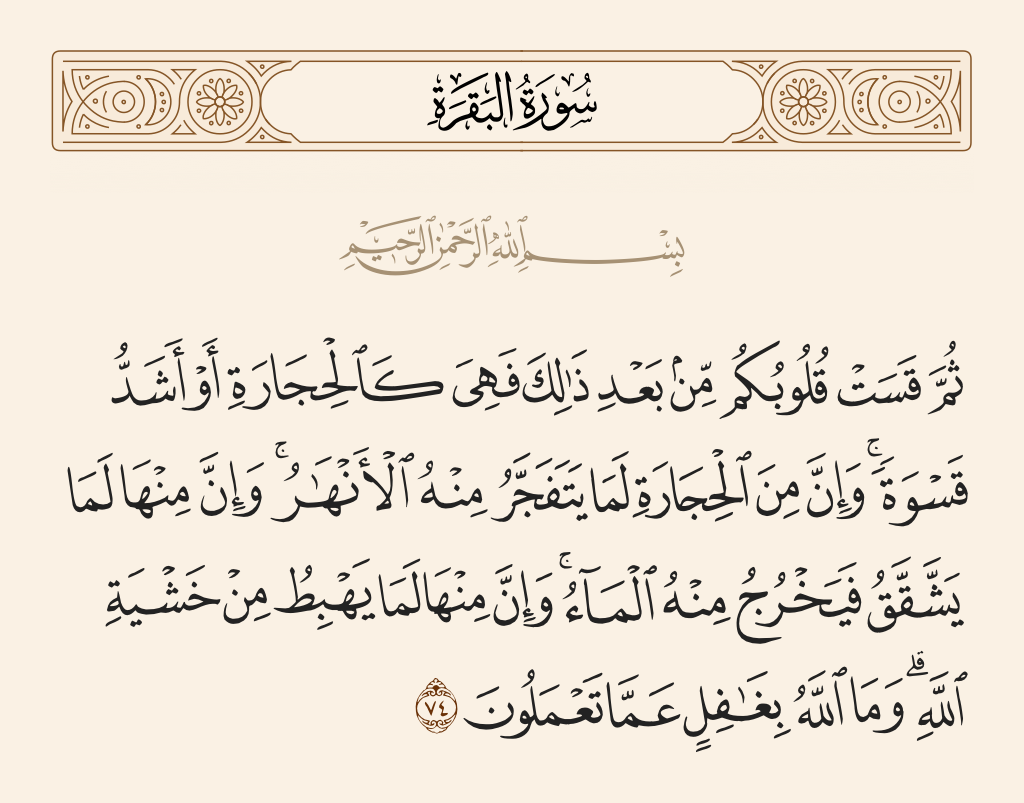 سُورَةُ البَقَرَةِ
بِسْمِ ٱللَّهِ ٱلرَّحْمَٰنِ ٱلرَّحِيمِ
ثُمَّ قَسَتْ قُلُوبُكُم مِّنۢ بَعْدِ ذَٰلِكَ فَهِىَ كَٱلْحِجَارَةِ أَوْ أَشَدُّ
قَسْوَةً ۚ وَإِنَّ مِنَ ٱلْحِجَارَةِ لَمَا يَتَفَجَّرُ مِنْهُ ٱلْأَنْهَٰرُ ۚ وَإِنَّ مِنْهَا لَمَا
يَشَّقَّقُ فَيَخْرُجُ مِنْهُ ٱلْمَآءُ ۚ وَإِنَّ مِنْهَا لَمَا يَهْبِطُ مِنْ خَشْيَةِ
ٱللَّهِ ۗ وَمَا ٱللَّهُ بِغَٰفِلٍ عَمَّا تَعْمَلُونَ ٧٤